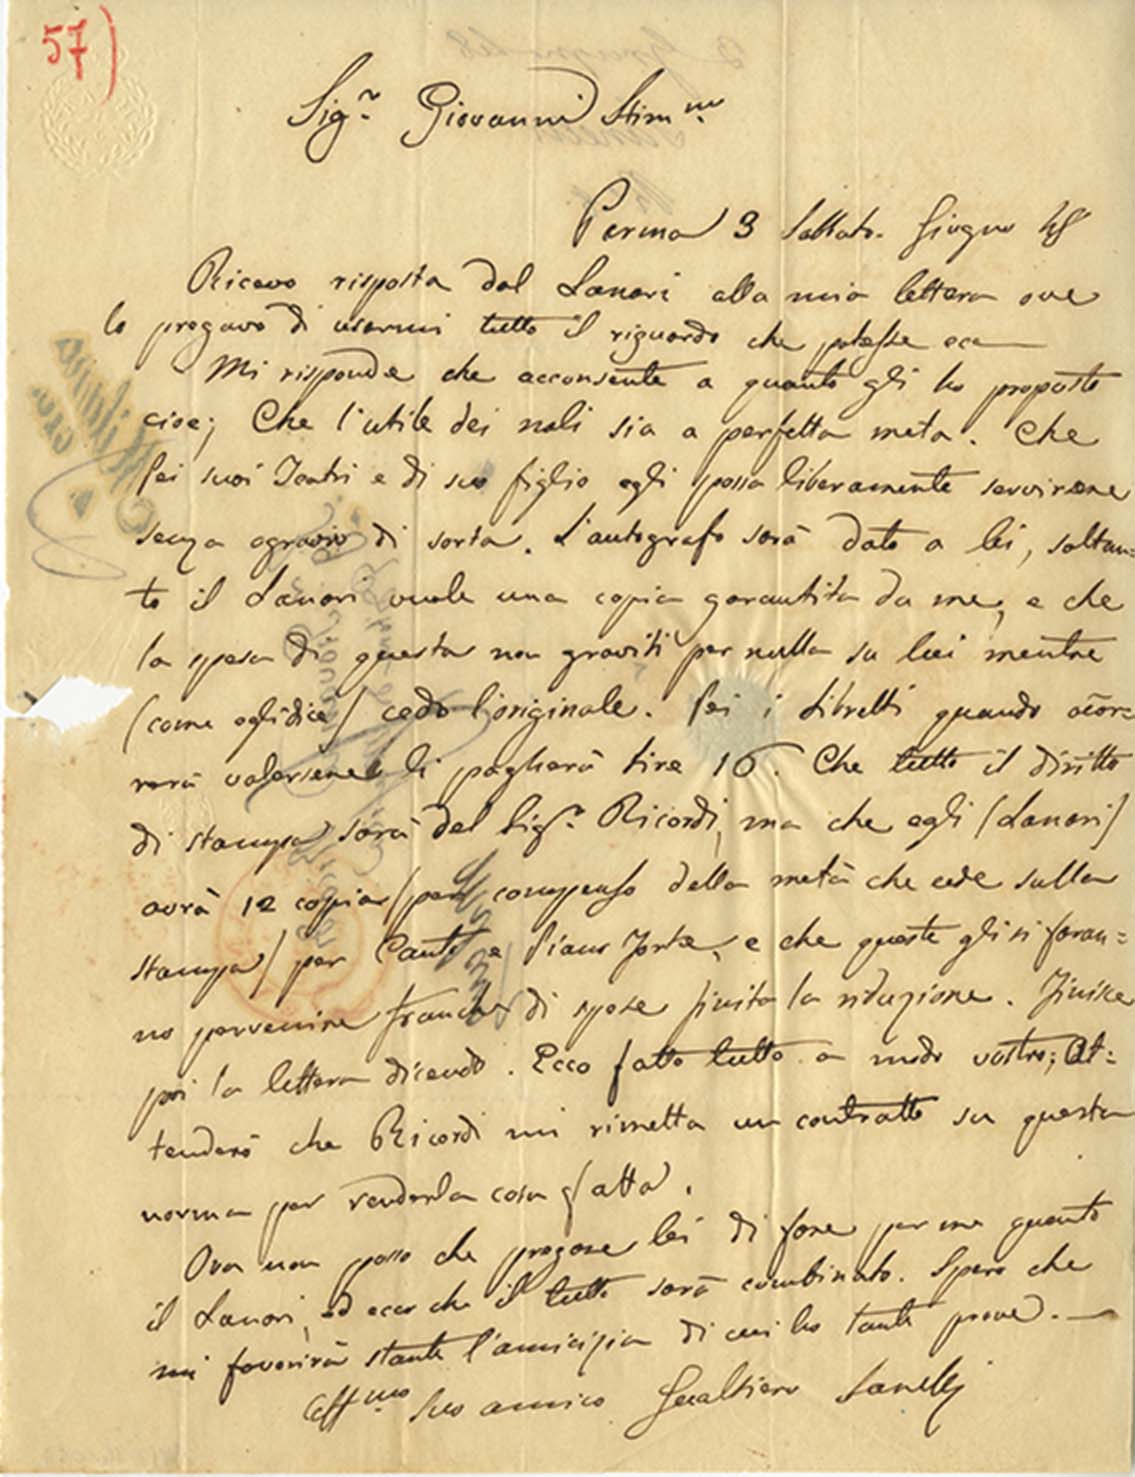 57)
Sig.r Giovanni Stim.mo
Parma 3 Sabbato. Giugno 48
Ricevo risposta dal Lanari alla mia lettera ove
lo pregavo di usarmi tutto il riguardo che potesse ecc
Mi risponde che acconsente a quanto gli ho proposto
cioe; Che l'utile dei noli sia a perfetta metà. Che
pei suoi Teatri e di suo figlio egli possa liberamente servirsene
senza agravio di sorta. L'autografo sarà dato a lei, soltan=
to il Lanari vuole una copia garantita da me, e che
la spesa di questa non graviti per nulla su lui mentre
(come egli dice) cedo l'originale. Pei i Libretti quando ocor=
rerà valersene li pagherà lire 16. Che tutto il diritto
di stampa sarà del Sig.r Ricordi, ma che egli (Lanari)
avrà 12 copie (per compenso della metà che cede sulla
stampa) per Canto e Piano Forte, e che queste gli si faran=
no pervenire franche di spese finita la riduzione. Finisce
poi la lettera dicendo. Ecco fatto tutto a modo vostro; At=
tenderò che Ricordi mi rimetta un contratto su questa
norma per renderla cosa fatta.
Ora non posso che pregare lei di fare per me quanto
il Lanari, ed ecco che il tutto sarà combinato. Spero che
mi favorirà stante l'amicizia di cui ho tante prove.
Aff.mo suo amico Gualtiero Sanelli